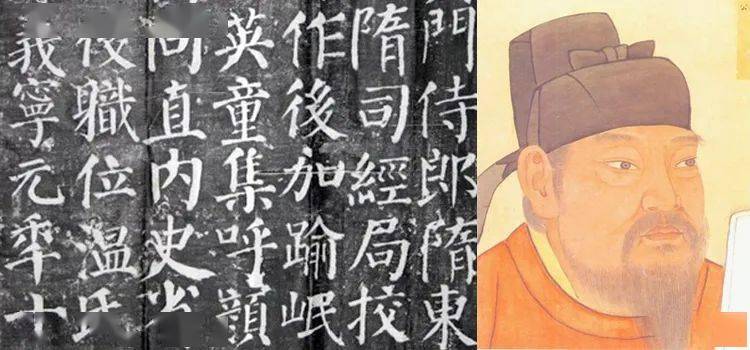 門侍郎隋東
隋司經局挍
作後加踰岷
英童集呼顏
同直內史省
後職位溫氏
義寧元年十